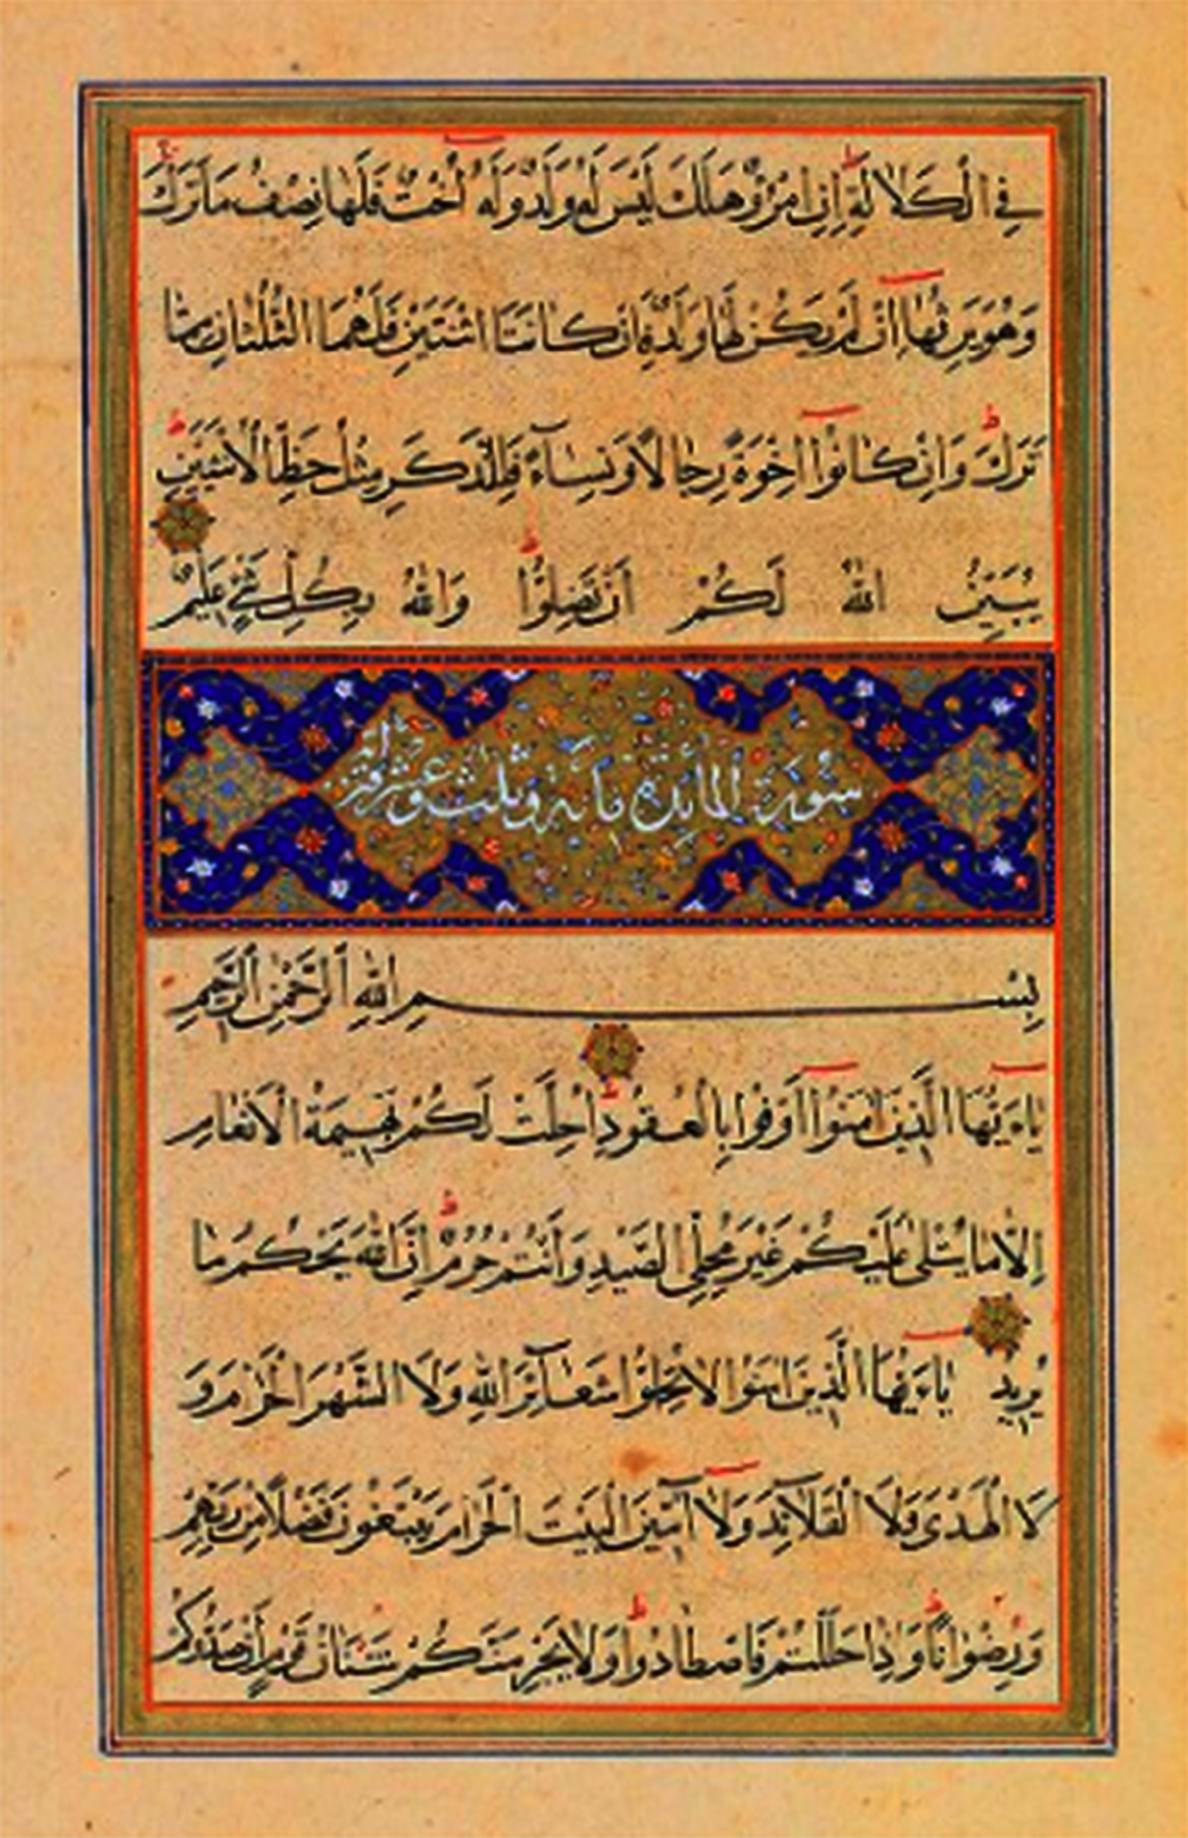 فِي الْكَلَالَةِ إِنِ امْرُؤٌ هَلَكَ لَيْسَ لَهُ وَلَدٌ وَلَهُ أُخْتٌ فَلَهَا نِصْفُ مَا تَرَكَ
وَهُوَ يَرِثُهَا إِنْ لَمْ يَكُنْ لَهَا وَلَدٌ فَإِنْ كَانَتَا اثْنَتَيْنِ فَلَهُمَا الثُّلُثَانِ مِمَّا
تَرَكَ وَإِنْ كَانُوا إِخْوَةً رِجَالًا وَنِسَاءً فَلِلذَّكَرِ مِثْلُ حَظِّ الْأُنْثَيَيْنِ
يُبَيِّنُ اللّٰهُ لَكُمْ أَنْ تَضِلُّوا وَاللّٰهُ بِكُلِّ شَيْءٍ عَلِيمٌ
سُورَة الْمَائِدَة مِائة وثلث وعشر
بِسْمِ اللّٰهِ الرَّحْمٰنِ الرَّحِيمِ
يَاءَيُّهَا الَّذِينَ اٰمَنُوا أَوْفُوا بِالْعُقُودِ اُحِلَّتْ لَكُمْ بَهِيمَةُ الْاَنْعَامِ
اِلَّا مَا يُتْلٰى عَلَيْكُمْ غَيْرَ مُحِلِّي الصَّيْدِ وَاَنْتُمْ حُرُمٌ اِنَّ اللّٰهَ يَحْكُمُ مَا
يُرِيدُ يَاءَيُّهَا الَّذِينَ اٰمَنُوا لَا تُحِلُّوا شَعَائِرَ اللّٰهِ وَلَا الشَّهْرَ الْحَرَامَ وَ
لَا الْهَدْىَ وَلَا الْقَلَائِدَ وَلَا آمِّينَ الْبَيْتَ الْحَرَامَ يَبْتَغُونَ فَضْلًا مِنْ رَبِّهِمْ
وَرِضْوَانًا وَإِذَا حَلَلْتُمْ فَاصْطَادُوا وَلَا يَجْرِمَنَّكُمْ شَنَاٰنُ قَوْمٍ أَنْ صَدُّوكُمْ